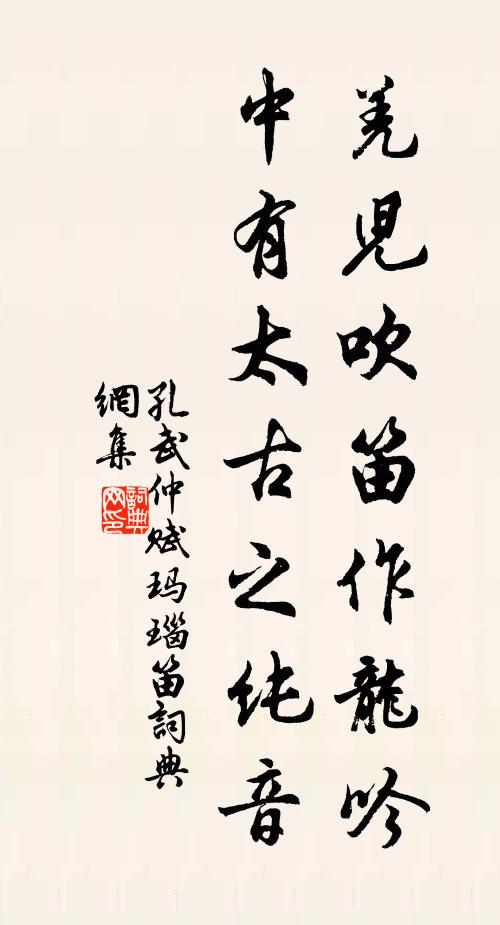 羌児吹笛作龍吟
中有太古之純音
孔武仲赋玛瑙笛詞典
網集
詞典
网印